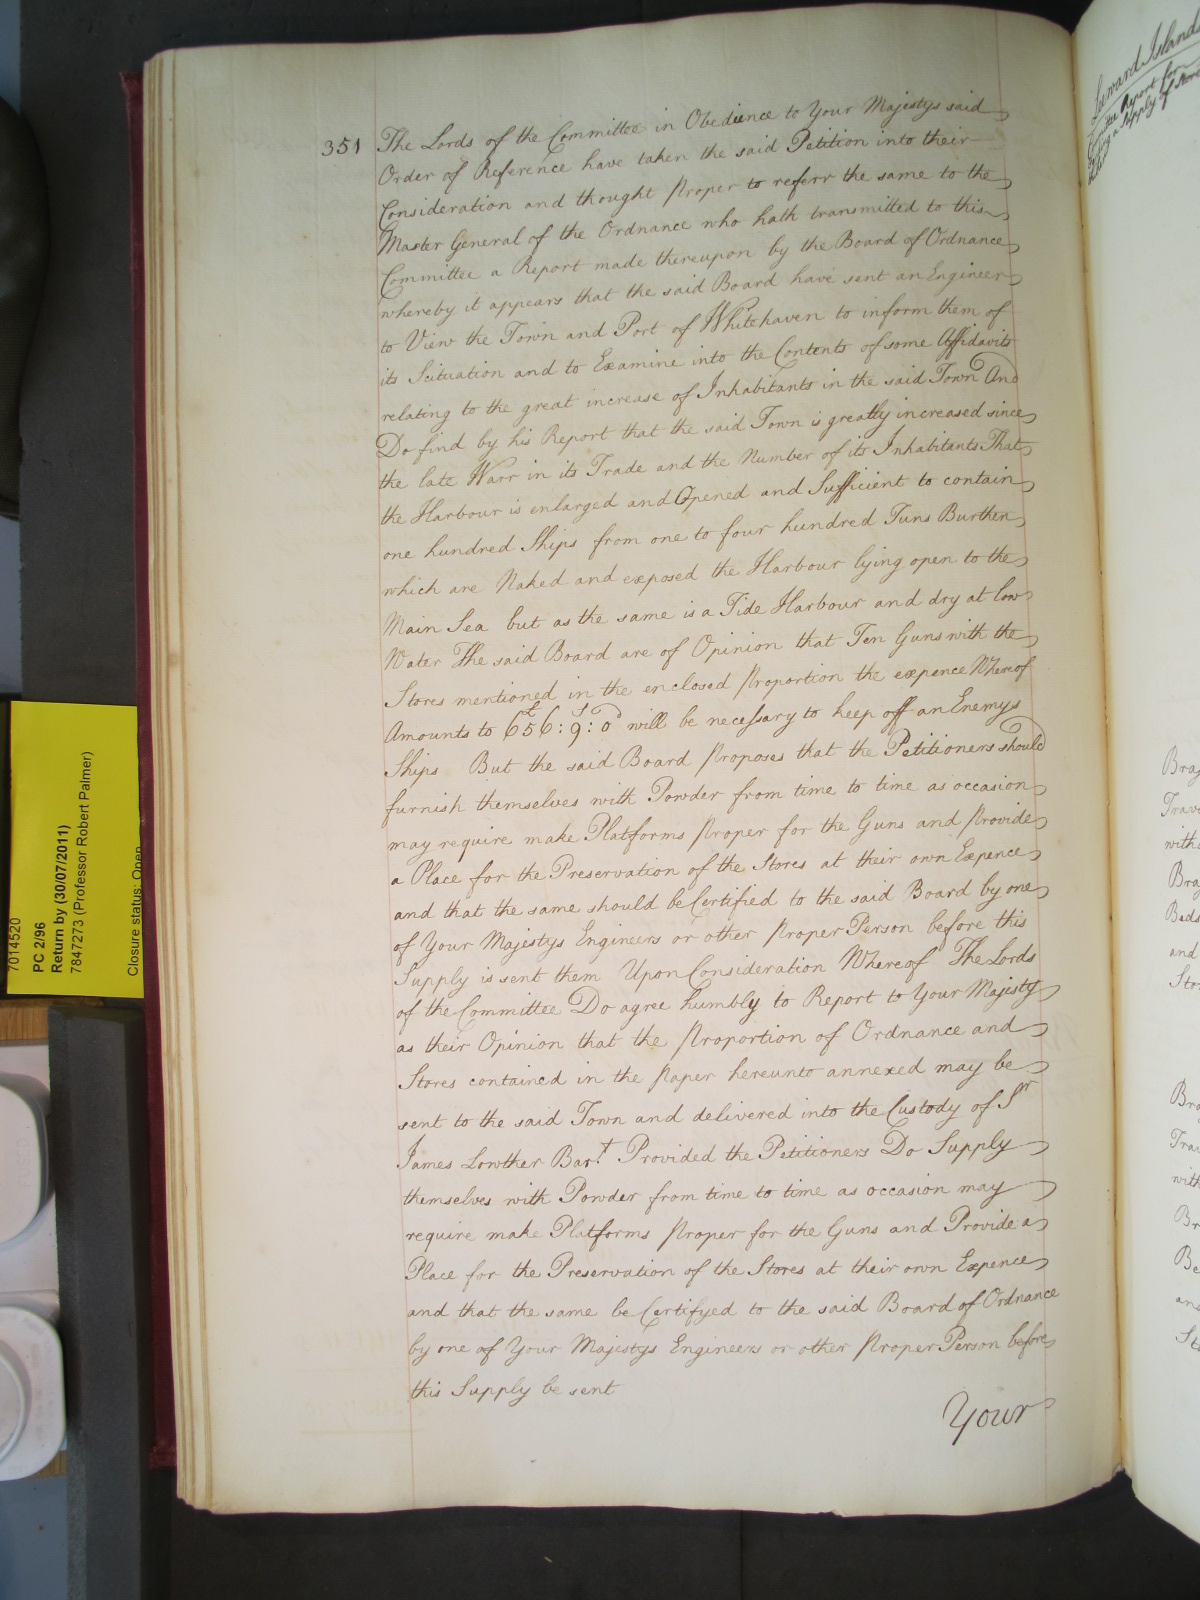 351
The Lords of the Committee in Obedience to Your Majestys said
Order of Reference have taken the said Petition into their
Consideration and thought proper to referr the same to the
Master General of the Ordnance who hath transmitted to this
Committee a Report made thereupon by the Board of Ordnance
whereby it appears that the said Board have sent an Engineer
to View the Town and Port of Whitehaven to inform them of
its Scituation and to Examine into the Contents of some Affidavits
relating to the great increase of Inhabitants in the said Town And
Do find by his Report that the said Town is greatly increased since
the late Warr in its Trade and the Number of its Inhabitants That
the Harbour is enlarged and Opened and Sufficient to contain
one hundred Ships from one to four hundred Tuns Burthen
which are Naked and exposed the Harbour lying open to the
Main Sea but as the same is a Tide Harbour and dry at low
Water The said Board are of Opinion that Ten Guns with the
Stores mentioned in the enclosed proportion the expence Whereof
Amounts to 656£: 9s: 0d will be necessary to keep off an Enemys
Ships But the said Board proposes that the Petitioners should
furnish themselves with Powder from time to time as occasion
may require make Platforms proper for the Guns and provide
a Place for the Preservation of the Stores at their own Expence
and that the same should be Certified to the said Board by one
of Your Majestys Engineers or other proper Person before this
Supply is sent them Upon Consideration Whereof The Lords
of the Committee Do agree humbly to Report to Your Majesty
as their Opinion that the proportion of Ordnance and
Stores contained in the paper hereunto annexed may be
sent to the said Town and delivered into the Custody of Sr
James Lowther Bart. Provided the Petitioners Do Supply
themselves with Powder from time to time as occasion may
require make Platforms proper for the Guns and Provide a
Place for the Preservation of the Stores at their own Expence
and that the same be Certifyed to the said Board of Ordnance
by one of Your Majestys Engineers or other proper Person before
this Supply be sent
Your
7014520
PC 2/96
Return by (30/07/2011)
7847273 (Professor Robert Palmer)
Closure status: Open
Leeward Islands
Report for
Supply of Stores